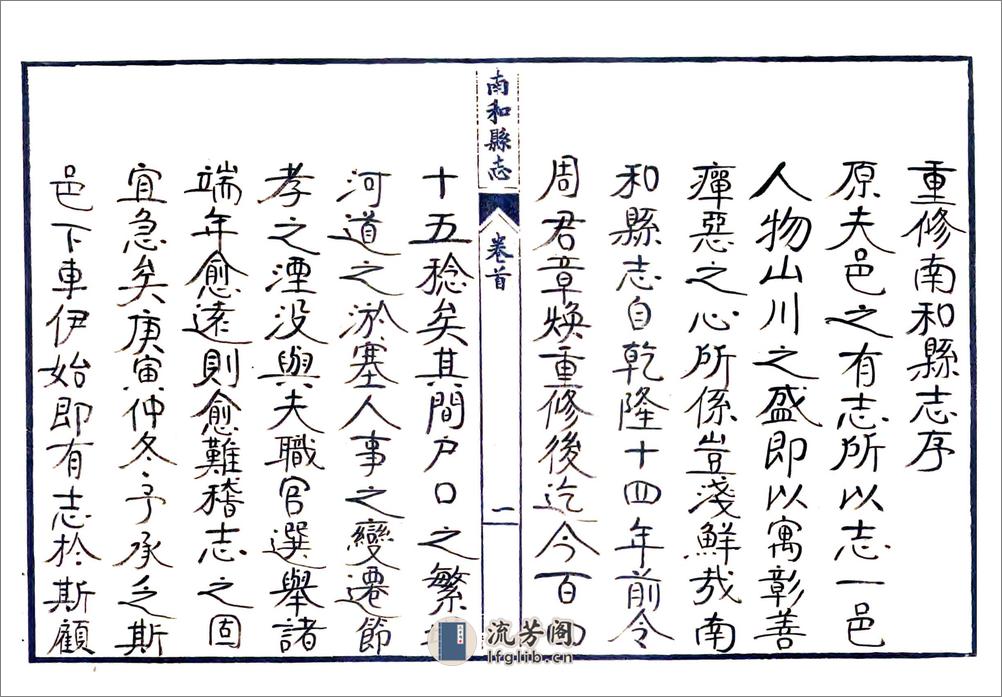 重修南和縣志序
原夫邑之有志所以志一邑
人物山川之盛即以寓彰善
癉惡之心所係豈淺鮮哉南
和縣志自乾隆十四年前令
周君章煥重修後迄今百四
南和縣志
卷首
一
十五稔矣其間戶口之繁
河道之淤塞人事之變遷節
孝之湮没與夫職官選舉諸
端年愈遠則愈難稽志之固
宜急矣庚寅仲冬予承乏斯
邑下車伊始即有志於斯顧
流芳阁
lfglib.cn